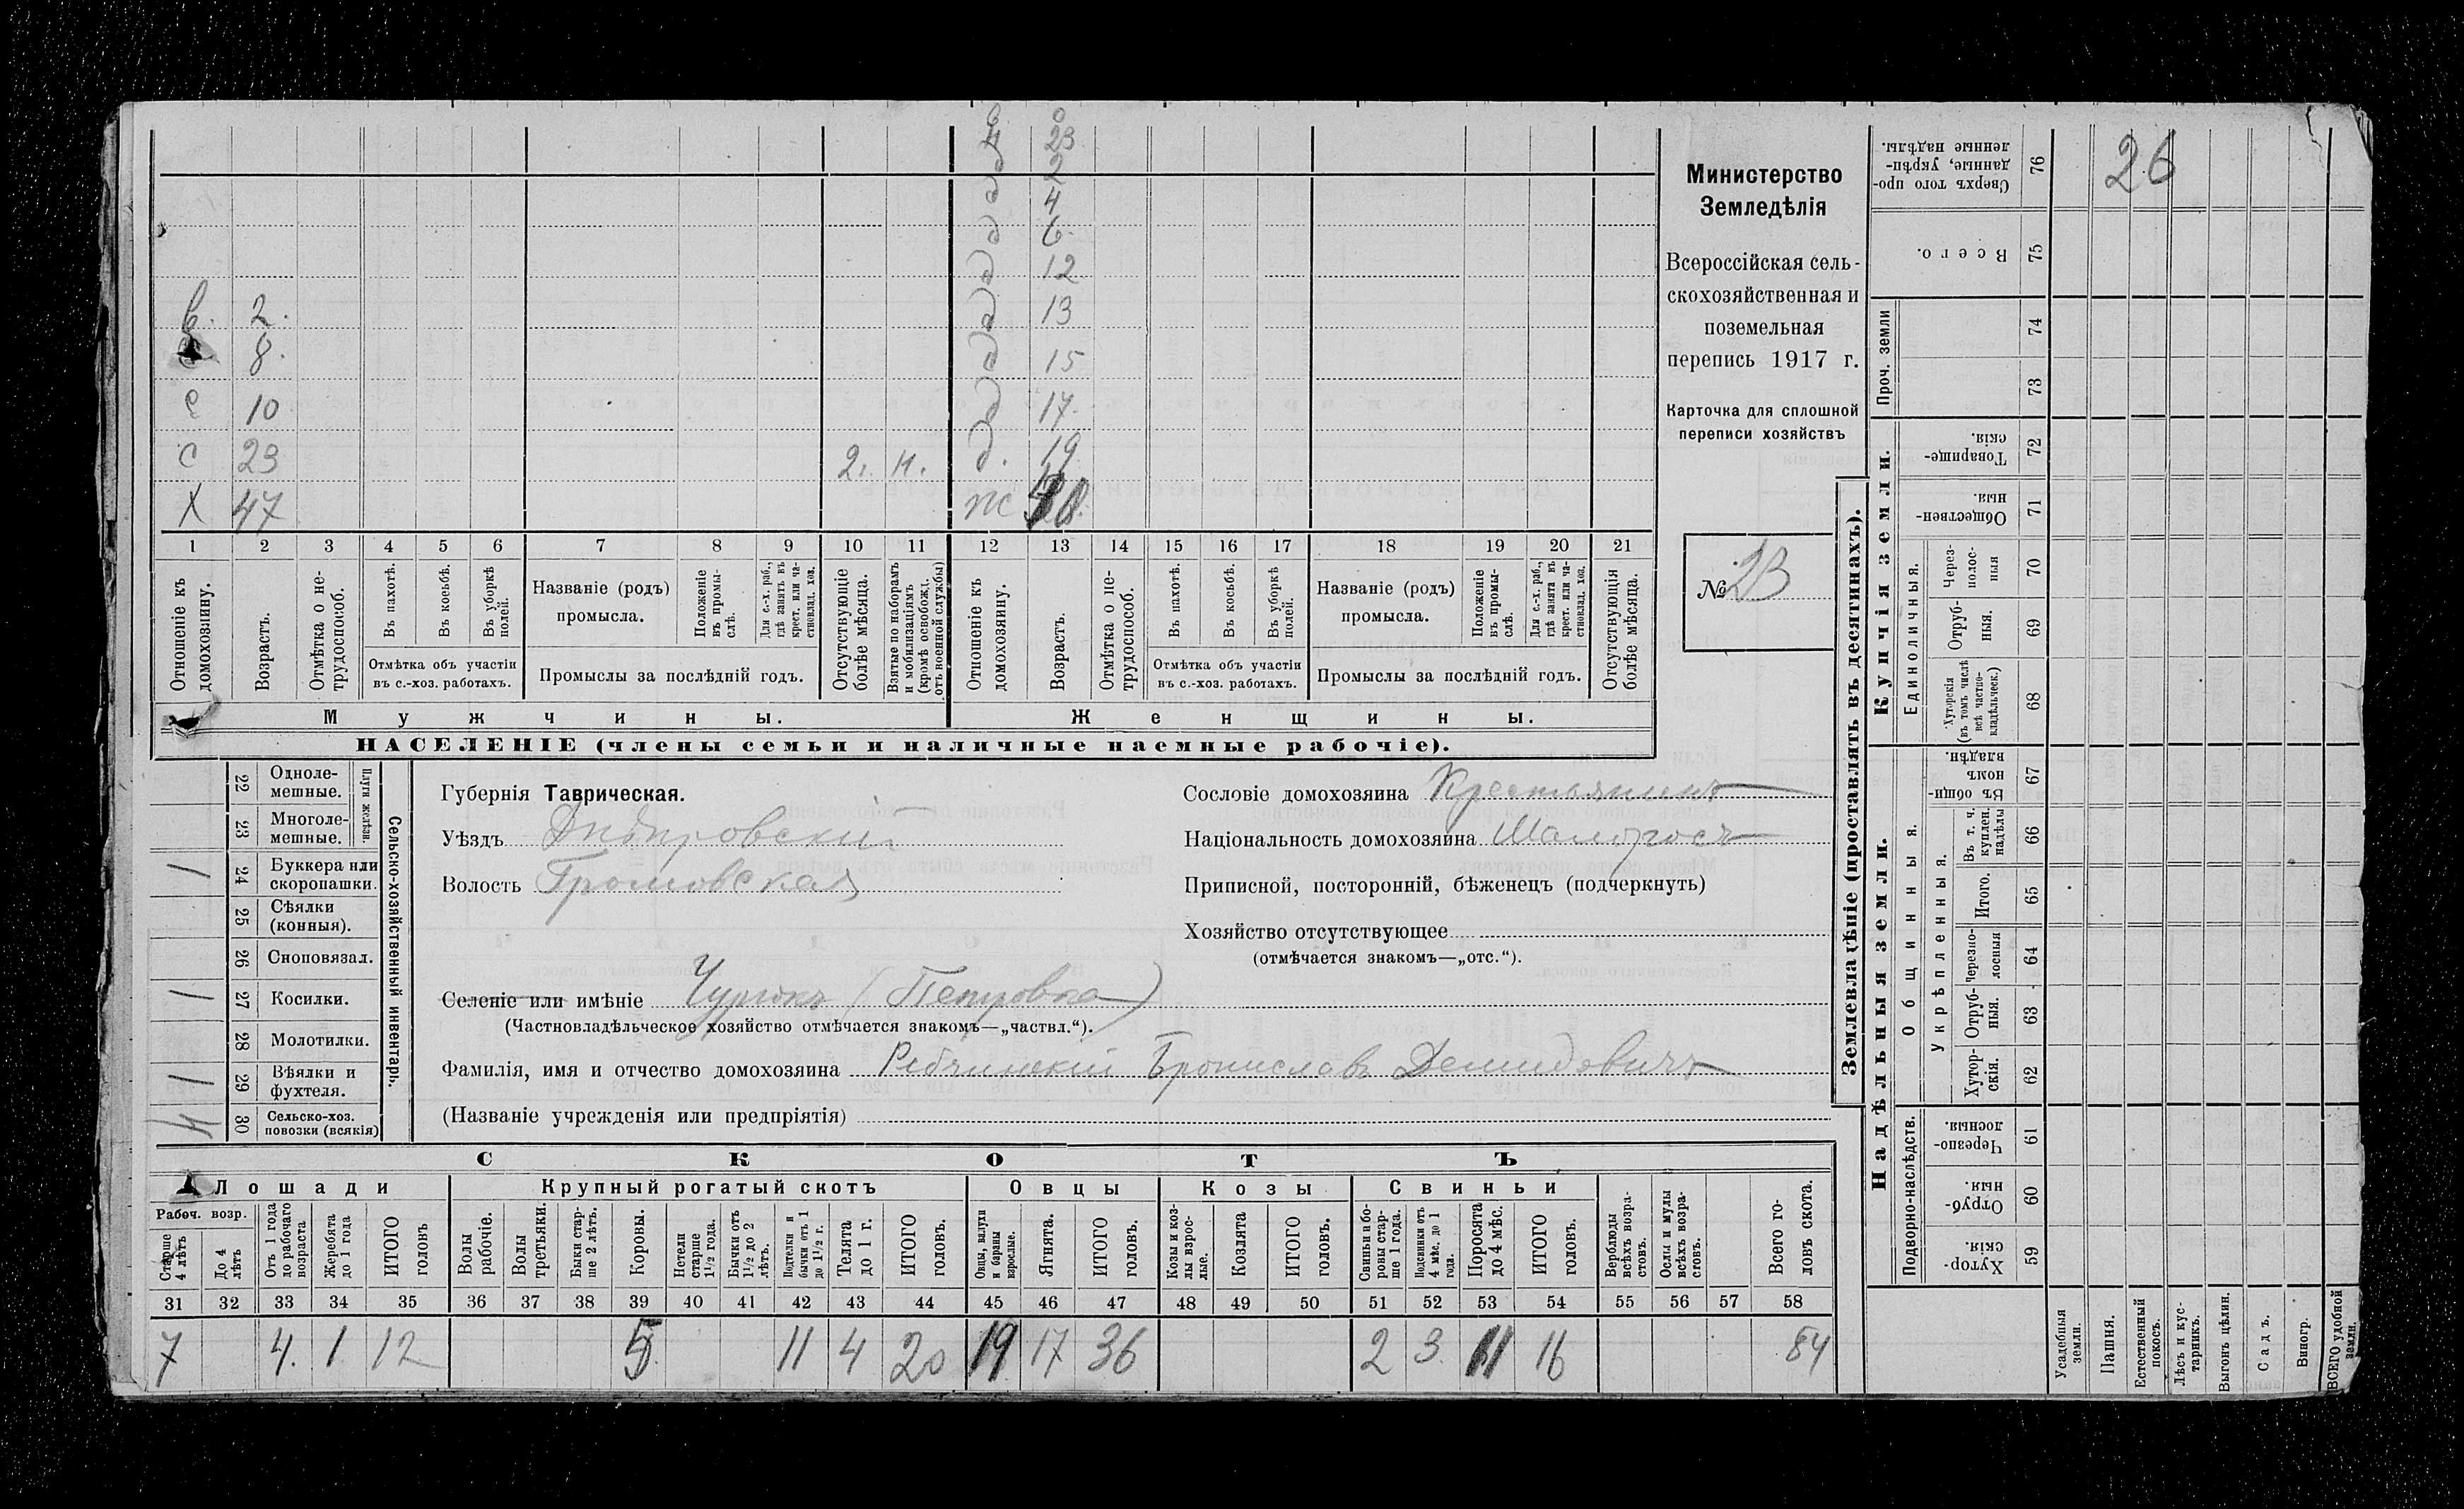 Министерство
Земледѣлія
Всероссійская сель-
скохозяйственная и
поземельная
перепись 1917 г.
Карточка для сплошной
переписи хозяйствъ
№ 23
в. 2.
8.
с 10
с 23 2. н.
х 47
0
23
2
д 4
д 6.
д 12
д 13
д 15
д 17.
д. 19
ж
1 2 3 4 5 6 7 8 9 10 11 12 13 14 15 16 17 18 19 20 21
Отношеніе къ домохозяину.
Возрастъ.
Отмѣтка о не-трудоспособ.
Въ пахотѣ.
Въ косьбѣ.
Въ уборкѣ полей.
Отмѣтка объ участіи
въ с.-хоз. работахъ.
Названіе (родъ)
промысла.
Положеніе въ промы-слѣ.
Для с.-х. раб., гдѣ занятъ въ крест. или ча-стновлад. хоз.
Промыслы за послѣдній годъ.
Отсутствующіе болѣе мѣсяца.
Взятые по наборамъ и мобилизаціямъ (кромѣ освобожд. отъ военной службы)
Отношеніе къ домохозяину.
Возрастъ.
Отмѣтка о не-трудоспособ.
Въ пахотѣ.
Въ косьбѣ.
Въ уборкѣ полей.
Отмѣтка объ участіи
въ с.-хоз. работахъ.
Названіе (родъ)
промысла.
Положеніе въ промы-слѣ.
Для с.-х. раб., гдѣ занята въ крест. или ча-стновлад. хоз.
Промыслы за послѣдній годъ.
Отсутствующія болѣе мѣсяца.
Мужчины.
Женщины.
НАСЕЛЕНІЕ (члены семьи и наличные наемные рабочіе).
Сельско-хозяйственный инвентарь.
Плуги желѣзн.
22 Одноле-мешные.
23 Многоле-мешные.
1 24 Буккера или скоропашки.
25 Сѣялки (конныя).
26 Сноповязал.
1 27 Косилки.
28 Молотилки.
1 29 Вѣялки и фухтеля.
4 30 Сельско-хоз. повозки (всякія)
Губернія Таврическая.
Уѣздъ Днѣпровскій
Волость Громовская
Селеніе или имѣніе Чурюкъ (Петровка)
(Частновладѣльческое хозяйство отмѣчается знакомъ—„частвл.“).
Фамилія, имя и отчество домохозяина Рибчинскій Брониславъ Демидовичъ
(Названіе учрежденія или предпріятія)
Сословіе домохозяина Крестьянинъ
Національность домохозяина Малоросъ
Приписной, посторонній, бѣженецъ (подчеркнуть)
Хозяйство отсутствующее
(отмѣчается знакомъ—„отс.“).
СКОТЪ
Лошади
Крупный рогатый скотъ
Овцы
Козы
Свиньи
Рабоч. возр.
Старше 4 лѣтъ
До 4 лѣтъ
Отъ 1 года до рабочаго возраста
Жеребята до 1 года
ИТОГО головъ
Волы рабочіе.
Волы третьяки.
Быки стар-ше 2 лѣтъ.
Коровы.
Нетели старше 1½ года.
Бычки отъ 1½ до 2 лѣтъ.
Подтелки и бычки отъ 1 до 1½ г.
Телята до 1 г.
ИТОГО головъ.
Овцы, валухи и бараны взрослые.
Ягнята.
ИТОГО головъ.
Козы и коз-лы взрос-лые.
Козлята
ИТОГО головъ.
Свиньи и бо-ровы стар-ше 1 года.
Подсвинки отъ 4 мѣс. до 1 года.
Поросята до 4 мѣс.
ИТОГО головъ.
Верблюды всѣхъ возра-стовъ.
Ослы и мулы всѣхъ возра-стовъ.
Всего го-ловъ скота.
31 32 33 34 35 36 37 38 39 40 41 42 43 44 45 46 47 48 49 50 51 52 53 54 55 56 57 58
7 4. 1 12 5 11 4 20 19 17 36 2 3 11 16 84
Землевладѣніе (проставлять въ десятинахъ).
Купчія земли.
Надѣльныя земли.
Сверхъ того про-данные, укрѣп-ленные надѣлы. 76
26
Всего. 75
Проч. земли
74
73
Товарище-скія. 72
Обществен-ныя. 71
Единоличныя.
Через-полос-ныя 70
Отруб-ныя. 69
Хуторскія (въ томъ числѣ всѣ частно-владѣльческ.) 68
Общинныя.
Въ общи-номъ владѣн. 67
Укрѣпленныя.
Въ т. ч. куплен. надѣлы 66
Итого. 65
Черезпо-лосныя 64
Отруб-ныя. 63
Хутор-скія. 62
Подворно-наслѣдств.
Черезпо-лосныя. 61
Отруб-ныя. 60
Хутор-скія. 59
Усадебныя земли.
Пашня.
Естественный покосъ.
Лѣсъ и кус-тарникъ.
Выгонъ цѣлин.
Садъ.
Виногр.
ВСЕГО удобной земли.